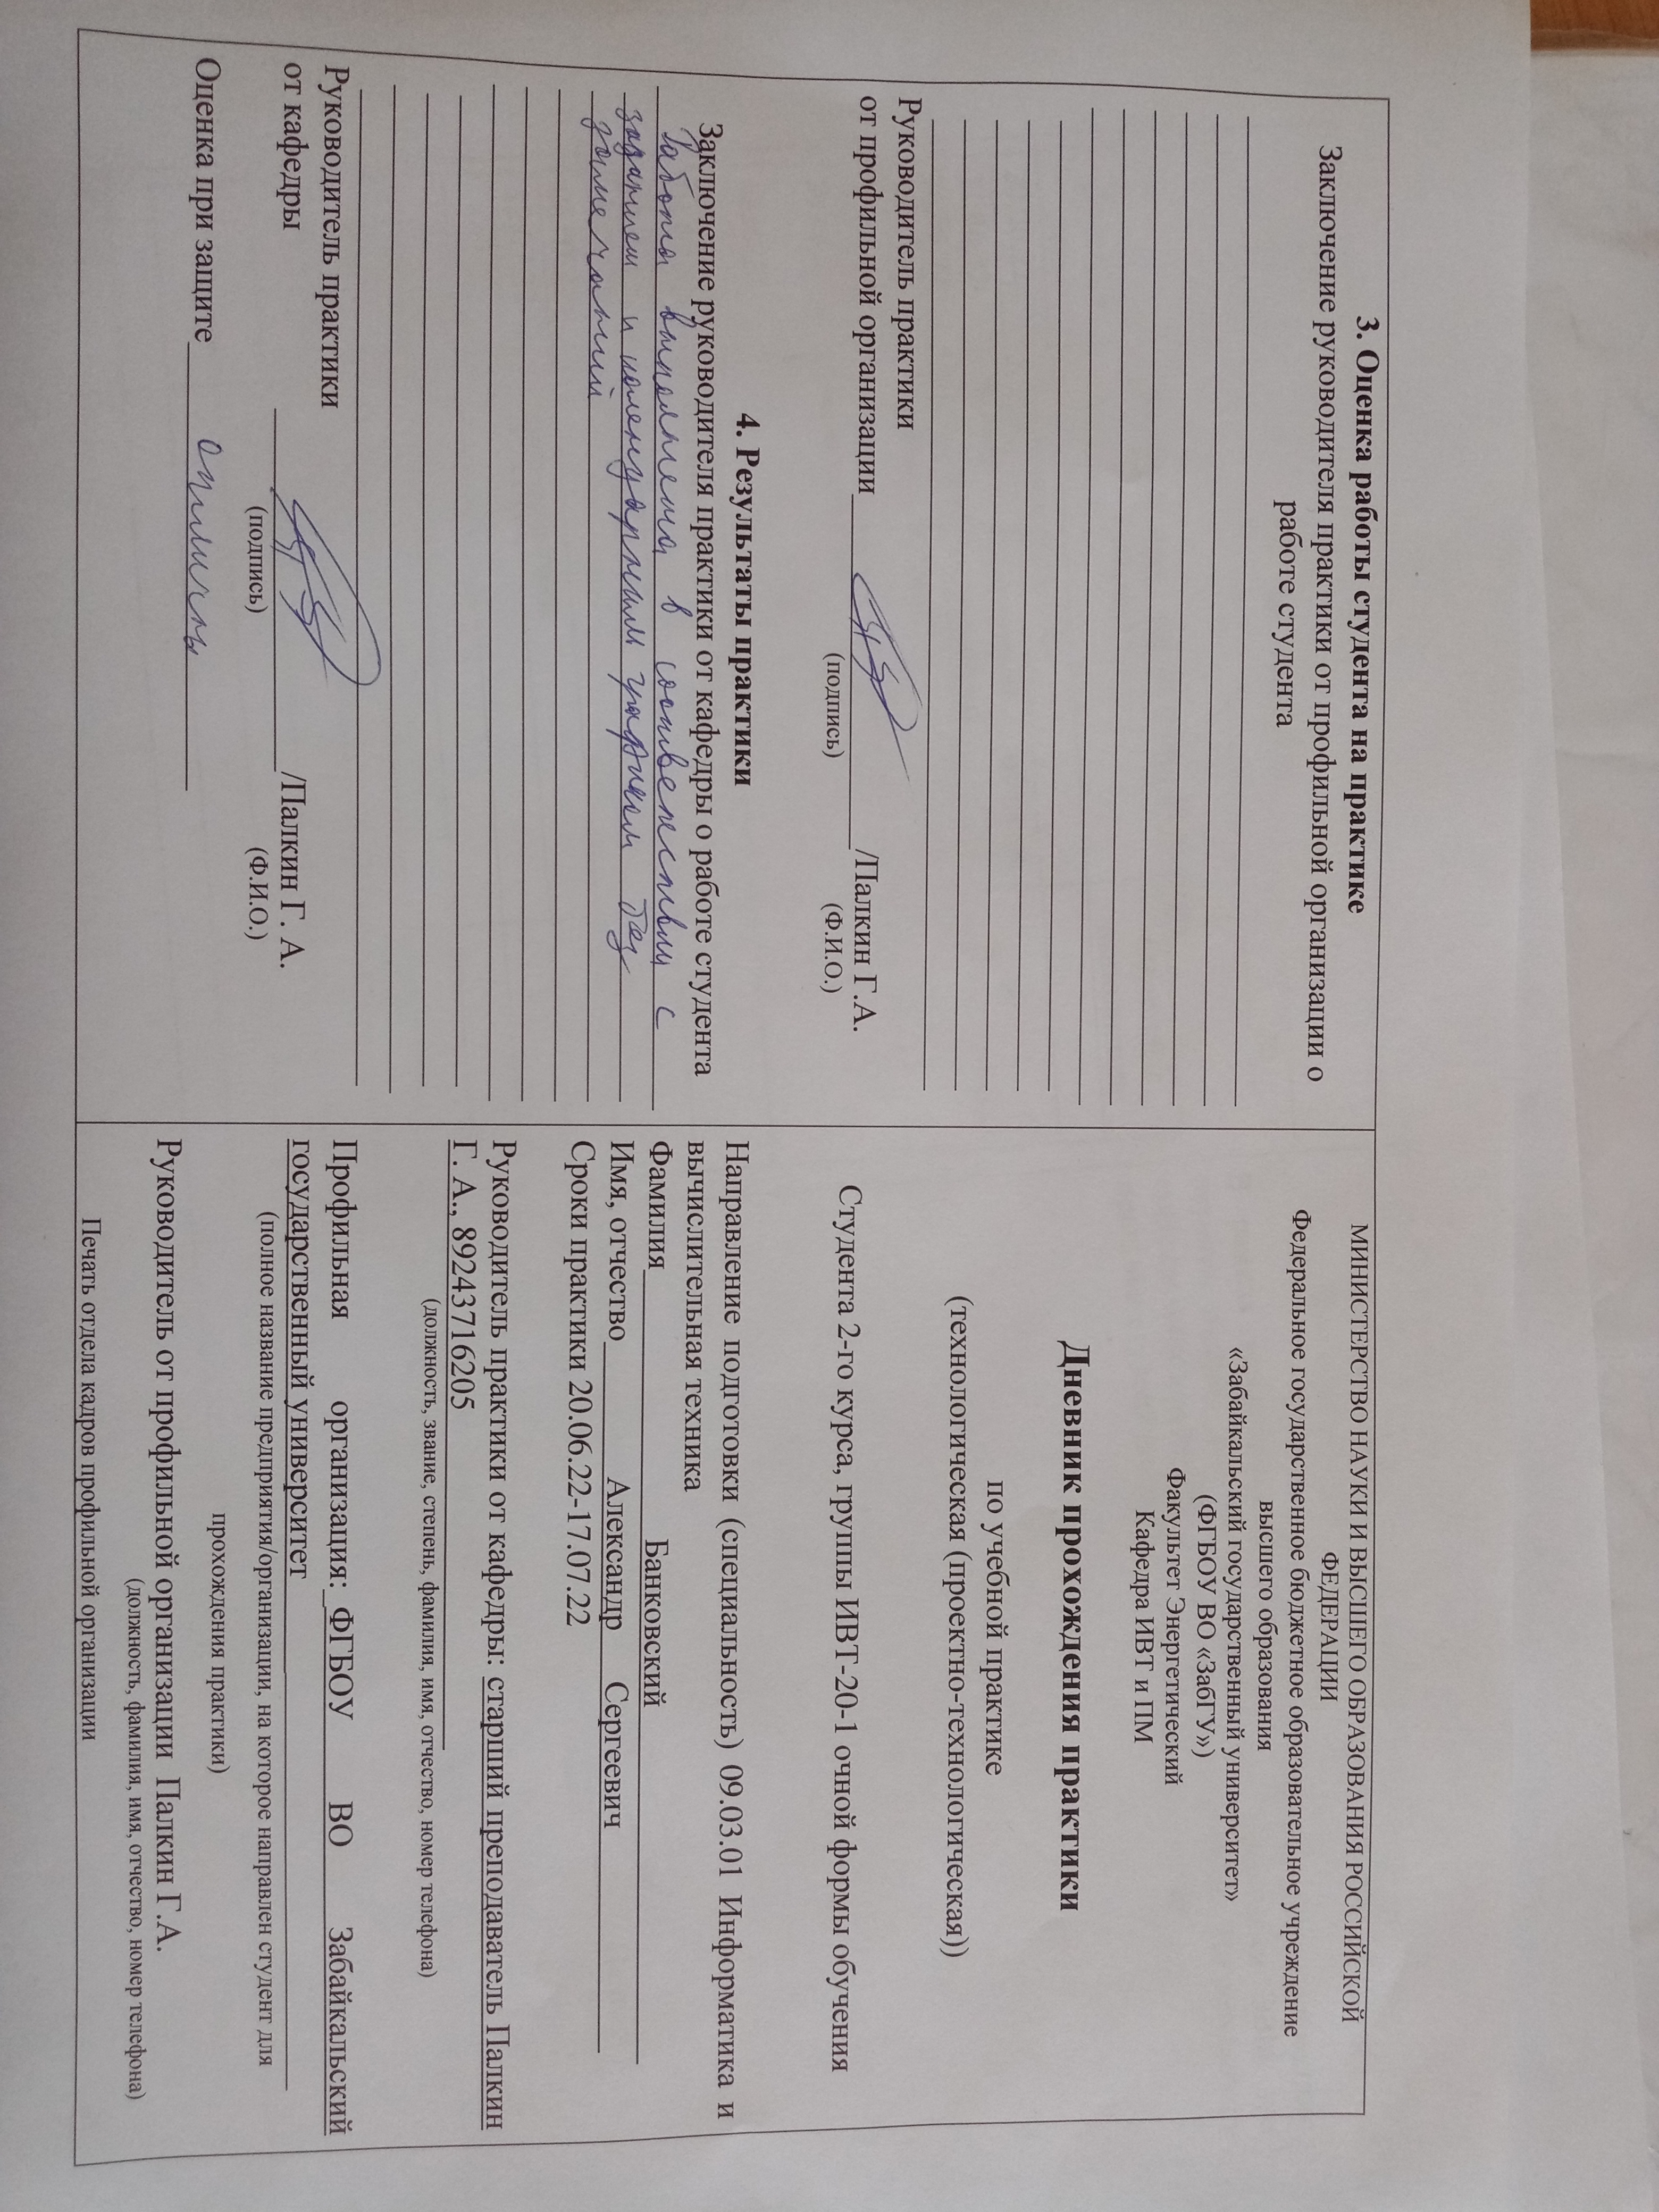 3. Оценка работы студента на практике
Заключение руководителя практики от профильной организации о
работе студента
Руководитель практики
от профильной организации /Палкин Г.А.
(подпись) (Ф.И.О.)
4. Результаты практики
Заключение руководителя практики от кафедры о работе студента
Работа выполнена в соответствии с
заданием и календарным графиком без
замечаний
Руководитель практики
от кафедры /Палкин Г. А.
(подпись) (Ф.И.О.)
Оценка при защите отлично
МИНИСТЕРСТВО НАУКИ И ВЫСШЕГО ОБРАЗОВАНИЯ РОССИЙСКОЙ
ФЕДЕРАЦИИ
Федеральное государственное бюджетное образовательное учреждение
высшего образования
«Забайкальский государственный университет»
(ФГБОУ ВО «ЗабГУ»)
Факультет Энергетический
Кафедра ИВТ и ПМ
Дневник прохождения практики
по учебной практике
(технологическая (проектно-технологическая))
Студента 2-го курса, группы ИВТ-20-1 очной формы обучения
Направление подготовки (специальность) 09.03.01 Информатика и
вычислительная техника
Фамилия Банковский
Имя, отчество Александр Сергеевич
Сроки практики 20.06.22-17.07.22
Руководитель практики от кафедры: старший преподаватель Палкин
Г. А., 89243716205
(должность, звание, степень, фамилия, имя, отчество, номер телефона)
Профильная организация: ФГБОУ ВО Забайкальский
государственный университет
(полное название предприятия/организации, на которое направлен студент для
прохождения практики)
Руководитель от профильной организации Палкин Г.А.
(должность, фамилия, имя, отчество, номер телефона)
Печать отдела кадров профильной организации